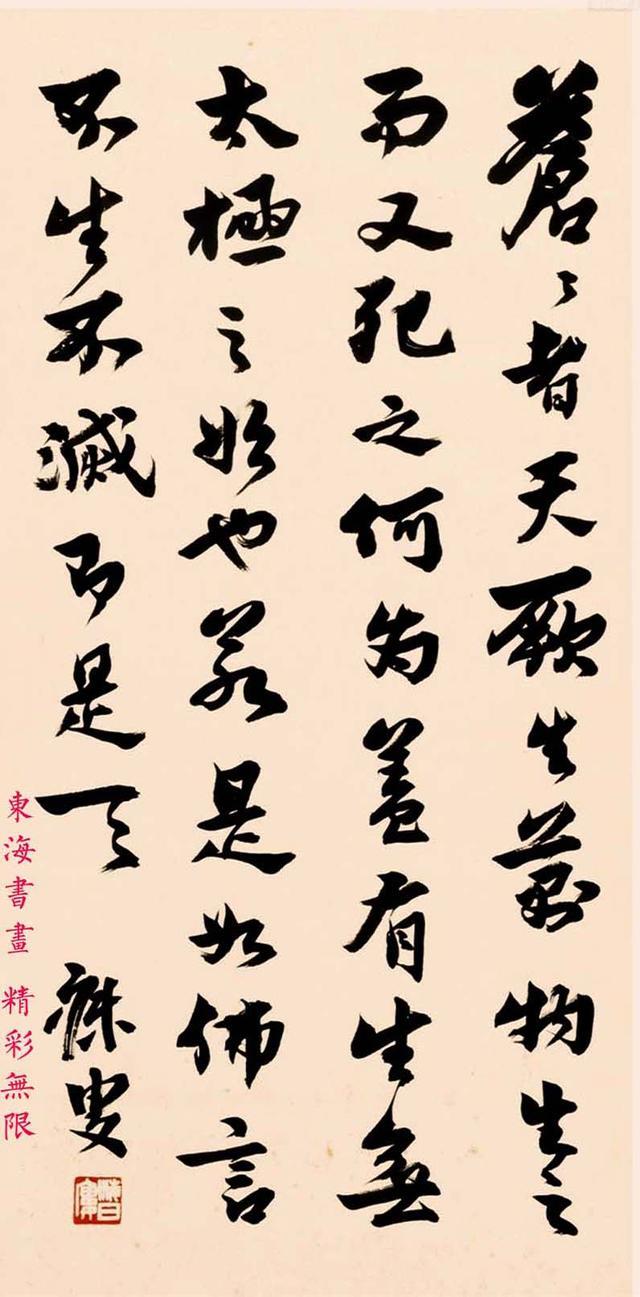 蒼〻者天厥生萬物生之
而又死之何為蓋有生無
太極之始也若是如佛言
不生不滅即是天 寐叟
東海書畫 精彩無限